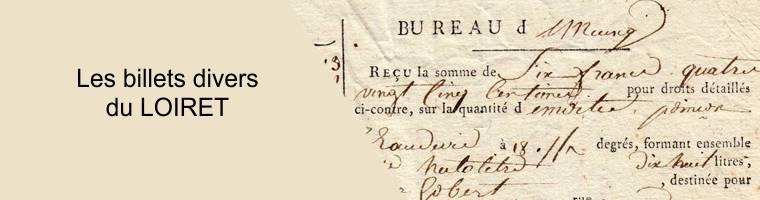 Les billets divers
du LOIRET
BUREAU d Meung
REÇU la somme de Six francs quatre
vingt Cinq Centimes pour droits détaillés
ci-contre, sur la quantité d
Eaudevie à 18 degrés, formant ensemble
dix huit litres,
Gobert , destinée pour
rue